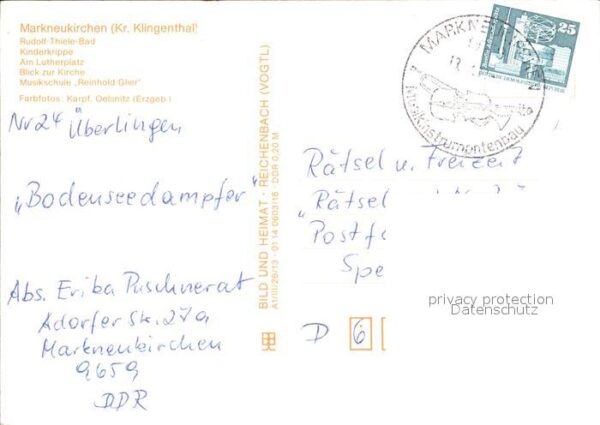 Markneukirchen (Kr. Klingenthal)
Rudolf-Thiele-Bad
Kinderkrippe
Am Lutherplatz
Blick zur Kirche
Musikschule „Reinhold Glier"
Farbfotos: Karpf, Oelsnitz (Erzgeb.)
Nr 24 Überlingen
„Bodenseedampfer"
Abs. Eriba Puschnerat
Adorfer Str. 27a
Markneukirchen
9659
DDR
BILD UND HEIMAT · REICHENBACH (VOGTL)
A1/III/26/13 · 01 14 0603/16 · DDR 0,20 M
MARKNEUKIRCHEN
Musikinstrumentenbau
25
Rätsel u. Freizeit
„Rätsel
Postf
Spe
D 6
privacy protection
Datenschutz